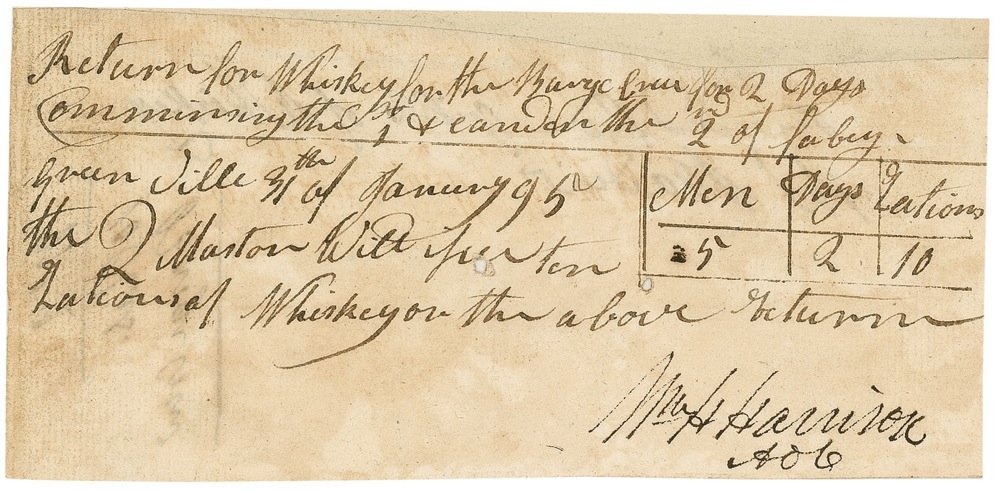 Return for Whiskey for the Barge Crew for 2 Days
Comminsing the 1st & eanden the 2nd of fabey
Green Ville 31th of Janury 95
Men Days Rations
5 2 10
the 2 Maston Will isue ten
Rations of Whiskey on the above Returnn
Wm H Harrison
ADC